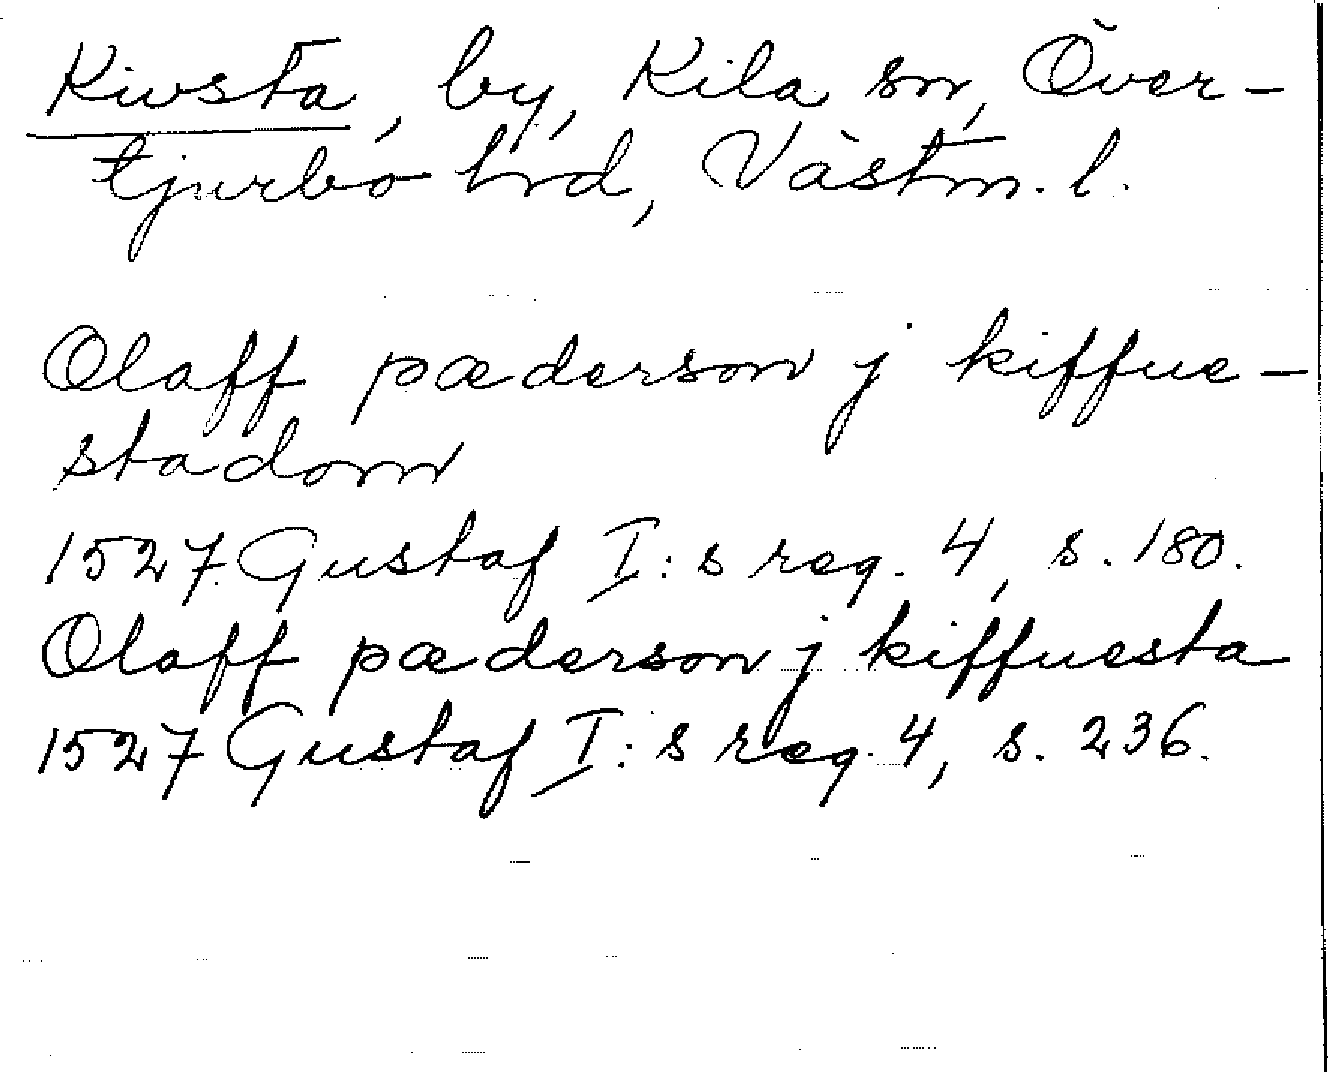 Kivsta, by, Kila sn, Över-
tjurbo hrd, Västm. l.
Olaff pæderson j kiffue-
stadom
1527 Gustaf I:s reg. 4, s. 180.
Olaff pæderson j kiffuesta
1527 Gustaf I:s reg. 4, s. 236.